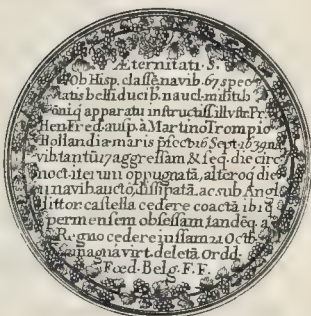 Æternitati. S.
Ob Hisp. classē navib. 67 spec
tatis belli ducib. naucl. militib
omiq apparatu instructiss. illustr. Pr.
Hen. Fred. ausp. à Martino Trompio
Hollandiæ maris pfecto 16 Sept. 1639 na
vib. tantū 17 aggressam & seq. die circ
noct. iterum oppugnatā, altero q die
11 navib. aucto, dissipatā, ac sub Angl
littor. castella cedere coactā ibiq
per mensem obsessam, tandē q. a
Regno cedere iussam 21 Octb
magna virt. deletā Ordd.
Fœd. Belg. F. F.